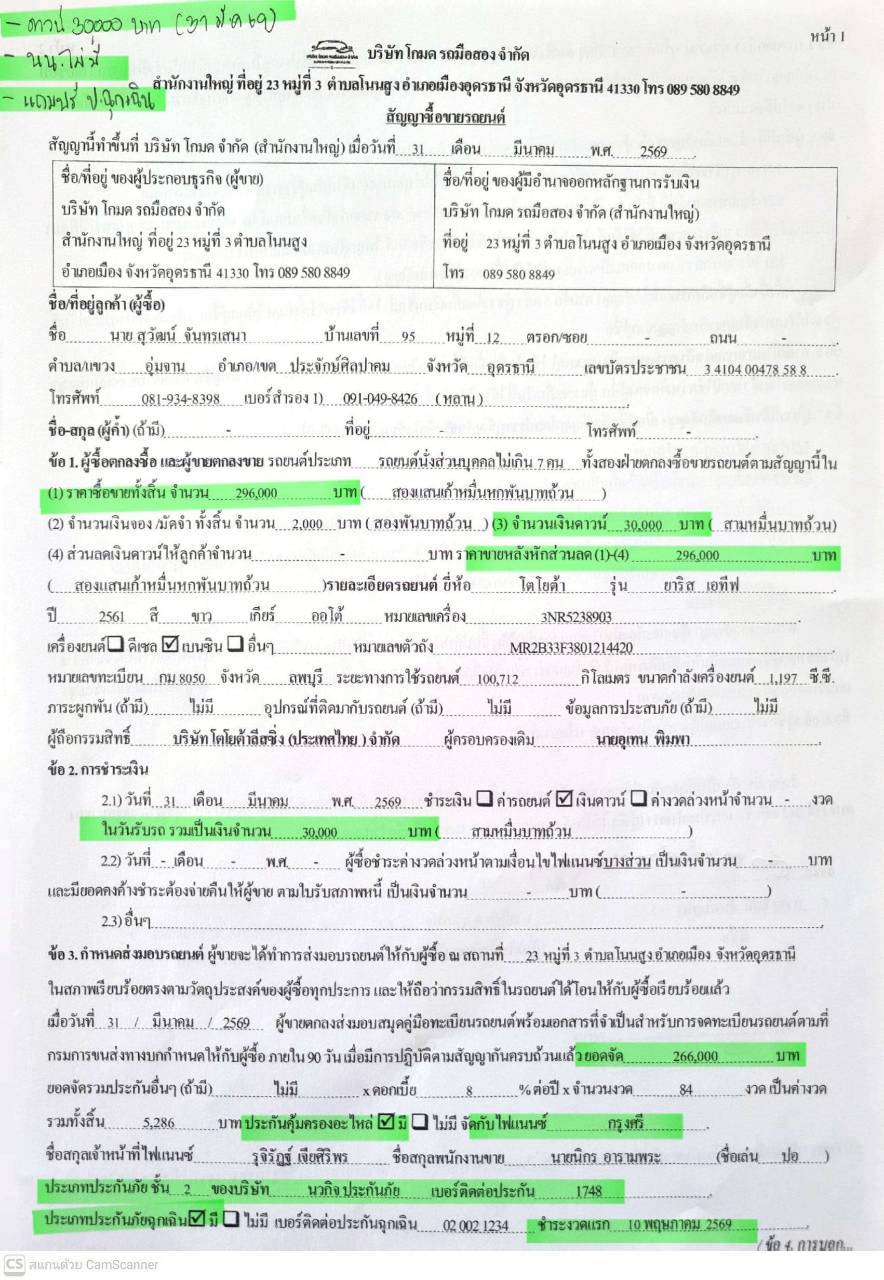 - ดาวน์ 30000 บาท (31 มีค 69)
- นน. ไม่มี
- แถมฟรี ป.ฉุกเฉิน
หน้า 1
บริษัท โกมด รถมือสอง จำกัด
สำนักงานใหญ่ ที่อยู่ 23 หมู่ที่ 3 ตำบลโนนสูง อำเภอเมืองอุดรธานี จังหวัดอุดรธานี 41330 โทร 089 580 8849
สัญญาซื้อขายรถยนต์
สัญญานี้ทำขึ้นที่ บริษัท โกมด จำกัด (สำนักงานใหญ่) เมื่อวันที่ 31 เดือน มีนาคม พ.ศ. 2569
ชื่อ/ที่อยู่ ของผู้ประกอบธุรกิจ (ผู้ขาย)
บริษัท โกมด รถมือสอง จำกัด
สำนักงานใหญ่ ที่อยู่ 23 หมู่ที่ 3 ตำบลโนนสูง
อำเภอเมือง จังหวัดอุดรธานี 41330 โทร 089 580 8849
ชื่อ/ที่อยู่ ของผู้มีอำนาจออกหลักฐานการรับเงิน
บริษัท โกมด รถมือสอง จำกัด (สำนักงานใหญ่)
ที่อยู่ 23 หมู่ที่ 3 ตำบลโนนสูง อำเภอเมือง จังหวัดอุดรธานี
โทร 089 580 8849
ชื่อ/ที่อยู่ลูกค้า (ผู้ซื้อ)
ชื่อ นาย สุวัฒน์ จันทรเสนา บ้านเลขที่ 95 หมู่ที่ 12 ตรอก/ซอย - ถนน -
ตำบล/แขวง อุ่มจาน อำเภอ/เขต ประจักษ์ศิลปาคม จังหวัด อุดรธานี เลขบัตรประชาชน 3 4104 00478 58 8
โทรศัพท์ 081-934-8398 เบอร์สำรอง 1) 091-049-8426 (หลาน)
ชื่อ-สกุล (ผู้ค้ำ) (ถ้ามี) - ที่อยู่ - โทรศัพท์ -
ข้อ 1. ผู้ซื้อตกลงซื้อ และผู้ขายตกลงขาย รถยนต์ประเภท รถยนต์นั่งส่วนบุคคลไม่เกิน 7 คน ทั้งสองฝ่ายตกลงซื้อขายรถยนต์ตามสัญญานี้ใน
(1) ราคาซื้อขายทั้งสิ้น จำนวน 296,000 บาท ( สองแสนเก้าหมื่นหกพันบาทถ้วน )
(2) จำนวนเงินจอง /มัดจำ ทั้งสิ้น จำนวน 2,000 บาท ( สองพันบาทถ้วน ) (3) จำนวนเงินดาวน์ 30,000 บาท ( สามหมื่นบาทถ้วน)
(4) ส่วนลดเงินดาวน์ให้ลูกค้าจำนวน - บาท ราคาขายหลังหักส่วนลด (1)-(4) 296,000 บาท
( สองแสนเก้าหมื่นหกพันบาทถ้วน )รายละเอียดรถยนต์ ยี่ห้อ โตโยต้า รุ่น ยาริส เอทีฟ
ปี 2561 สี ขาว เกียร์ ออโต้ หมายเลขเครื่อง 3NR5238903
เครื่องยนต์ ☐ ดีเซล ☑ เบนซิน ☐ อื่นๆ หมายเลขตัวถัง MR2B33F3801214420
หมายเลขทะเบียน กม 8050 จังหวัด ลพบุรี ระยะทางการใช้รถยนต์ 100,712 กิโลเมตร ขนาดกำลังเครื่องยนต์ 1,197 ซี.ซี.
ภาระผูกพัน (ถ้ามี) ไม่มี อุปกรณ์ที่ติดมากับรถยนต์ (ถ้ามี) ไม่มี ข้อมูลการประสบภัย (ถ้ามี) ไม่มี
ผู้ถือกรรมสิทธิ์ บริษัท โตโยต้าลีสซิ่ง (ประเทศไทย ) จำกัด ผู้ครอบครองเดิม นายอุเทน พิมพา
ข้อ 2. การชำระเงิน
2.1) วันที่ 31 เดือน มีนาคม พ.ศ. 2569 ชำระเงิน ☐ ค่ารถยนต์ ☑ เงินดาวน์ ☐ ค่างวดล่วงหน้าจำนวน - งวด
ในวันรับรถ รวมเป็นเงินจำนวน 30,000 บาท ( สามหมื่นบาทถ้วน )
2.2) วันที่ - เดือน - พ.ศ. - ผู้ซื้อชำระค่างวดล่วงหน้าตามเงื่อนไขไฟแนนซ์บางส่วน เป็นเงินจำนวน - บาท
และมียอดคงค้างชำระต้องจ่ายคืนให้ผู้ขาย ตามใบรับสภาพหนี้ เป็นเงินจำนวน - บาท ( - )
2.3) อื่นๆ
ข้อ 3. กำหนดส่งมอบรถยนต์ ผู้ขายจะได้ทำการส่งมอบรถยนต์ให้กับผู้ซื้อ ณ สถานที่ 23 หมู่ที่ 3 ตำบลโนนสูง อำเภอเมือง จังหวัดอุดรธานี
ในสภาพเรียบร้อยตรงตามวัตถุประสงค์ของผู้ซื้อทุกประการ และให้ถือว่ากรรมสิทธิ์ในรถยนต์ได้โอนให้กับผู้ซื้อเรียบร้อยแล้ว
เมื่อวันที่ 31 / มีนาคม / 2569 ผู้ขายตกลงส่งมอบสมุดคู่มือทะเบียนรถยนต์พร้อมเอกสารที่จำเป็นสำหรับการจดทะเบียนรถยนต์ตามที่
กรมการขนส่งทางบกกำหนดให้กับผู้ซื้อ ภายใน 90 วัน เมื่อมีการปฏิบัติตามสัญญากันครบถ้วนแล้ว ยอดจัด 266,000 บาท
ยอดจัดรวมประกันอื่นๆ (ถ้ามี) ไม่มี x ดอกเบี้ย 8 % ต่อปี x จำนวนงวด 84 งวด เป็นค่างวด
รวมทั้งสิ้น 5,286 บาท ประกันคุ้มครองอะไหล่ ☑ มี ☐ ไม่มี จัดกับไฟแนนซ์ กรุงศรี
ชื่อสกุลเจ้าหน้าที่ไฟแนนซ์ รุจิรัฏฐ์ เจียศิริพร ชื่อสกุลพนักงานขาย นายนิกร อารามพระ (ชื่อเล่น ปอ )
ประเภทประกันภัย ชั้น 2 ของบริษัท นวกิจ ประกันภัย เบอร์ติดต่อประกัน 1748
ประเภทประกันภัยฉุกเฉิน ☑ มี ☐ ไม่มี เบอร์ติดต่อประกันฉุกเฉิน 02 002 1234 ชำระงวดแรก 10 พฤษภาคม 2569
( ข้อ 4. การบอก...
CS สแกนด้วย CamScanner